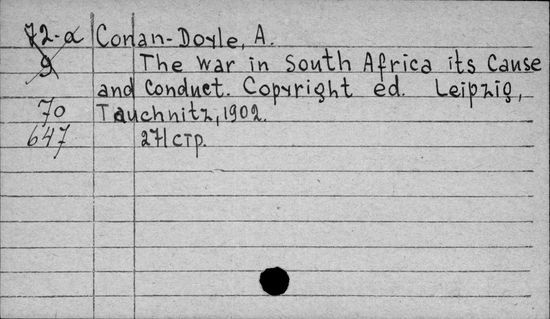 72-a Conan-Doyle, A.
9 The war in South Africa its Cause
and Conduct. Copyright ed. Leipzig,
70 Tauchnitz, 1902.
647 271 стр.